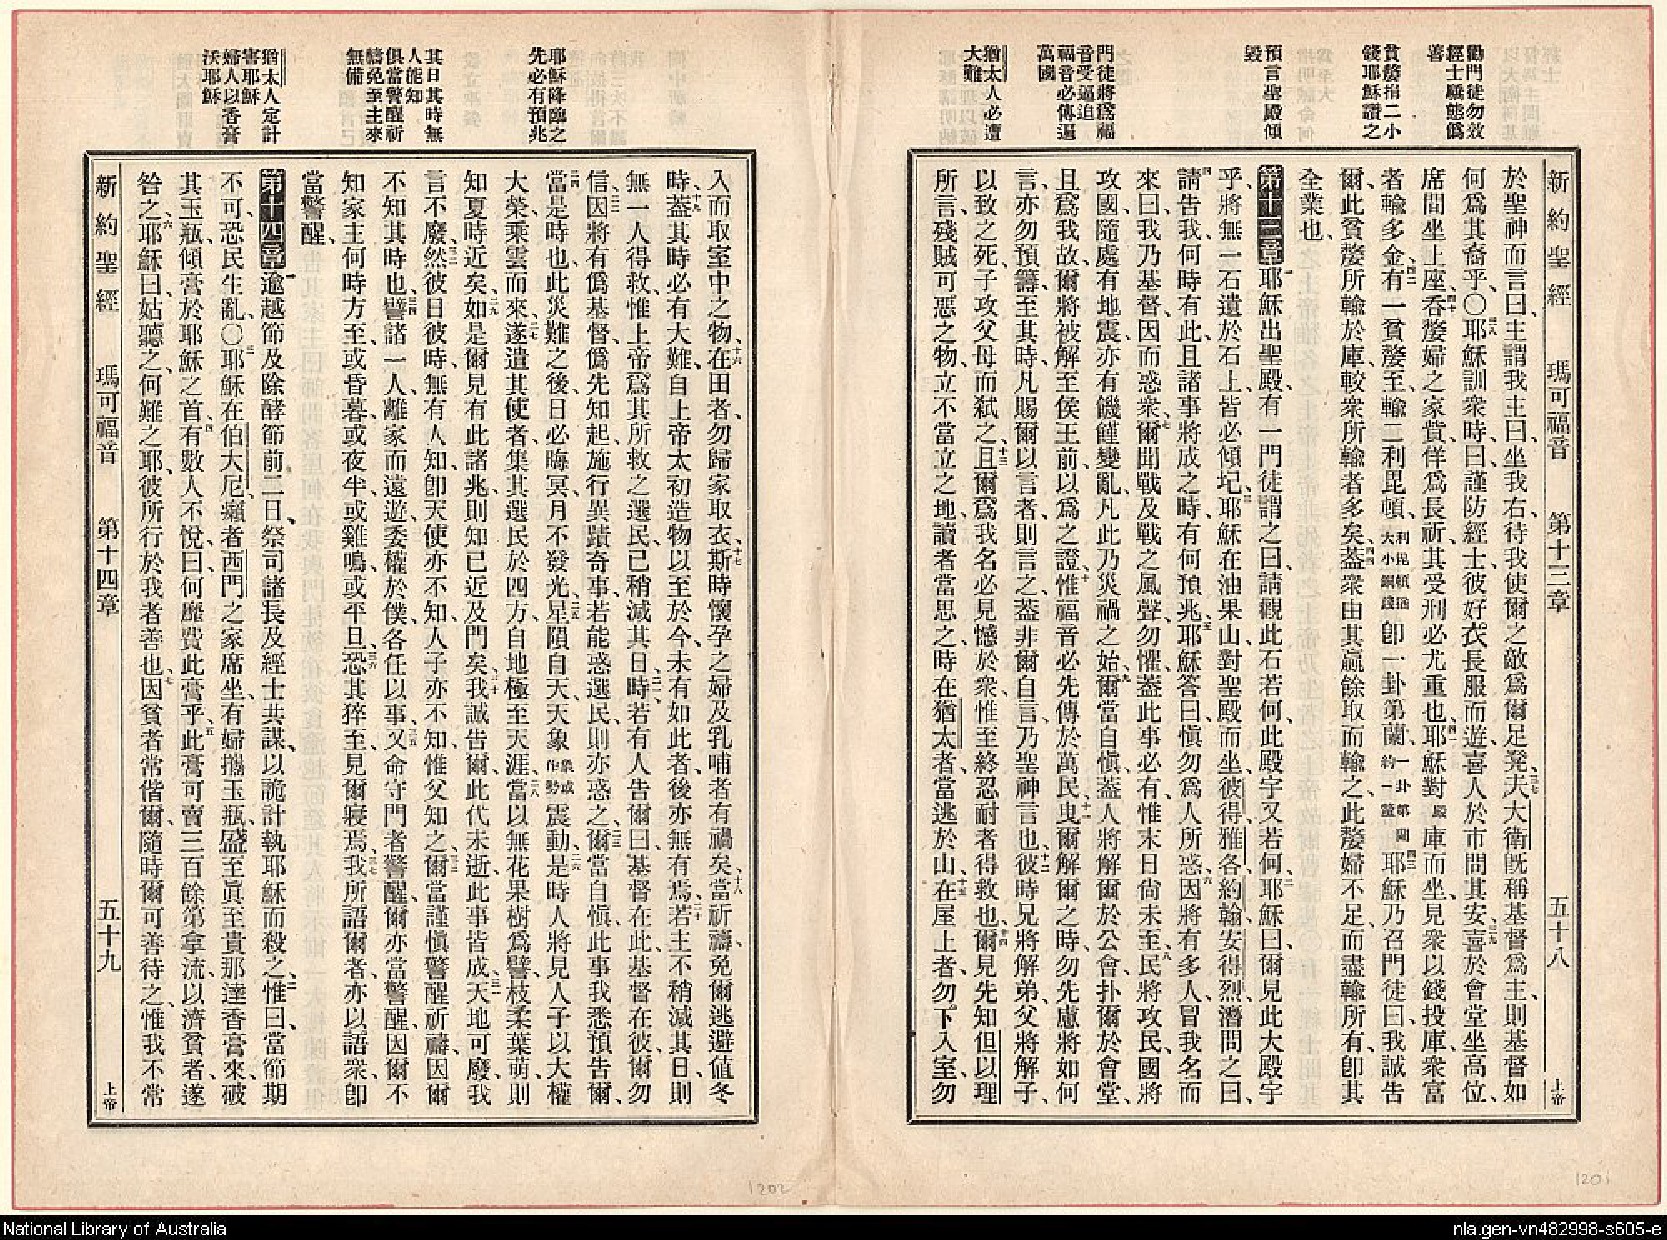 勸門徒勿效
經士驕態僞
善
貧嫠捐二小
錢耶穌讚之
預言聖殿傾
毀
門徒將爲福
音受逼迫
福音必傳遍
萬國
猶太人必遭
大難
新約聖經 瑪可福音 第十三章 五十八 上帝
於聖神而言曰、主謂我主曰、坐我右、待我使爾之敵爲爾足凳、三七夫大衛旣稱基督爲主、則基督如
何爲其裔乎、〇三八耶穌訓衆時、曰、謹防經士、彼好衣長服而遊、喜人於市問其安、三九喜於會堂坐高位、
席間坐上座、四十吞嫠婦之家貲、佯爲長祈、其受刑必尤重也、四一耶穌對殿庫而坐、見衆以錢投庫、衆富
者輸多金、四二有一貧嫠至、輸二利毘頓、利毘頓爲大小銅錢卽一卦第蘭、一卦第蘭約一釐四三耶穌乃召門徒曰、我誠告
爾、此貧嫠所輸於庫、較衆所輸者多矣、四四蓋衆由其贏餘取而輸之、此嫠婦不足、而盡輸所有、卽其
全業也、
第十三章 一耶穌出聖殿、有一門徒謂之曰、請觀此石若何、此殿宇又若何、二耶穌曰、爾見此大殿宇
乎、將無一石遺於石上、皆必傾圮、三耶穌在油果山、對聖殿而坐、彼得雅各約翰安得烈潛問之曰、
四請告我、何時有此、且諸事將成之時、有何預兆、五耶穌答曰、愼勿爲人所惑、六因將有多人、冒我名而
來曰、我乃基督、因而惑衆、七爾聞戰及戰之風聲、勿懼、蓋此事必有、惟末日尚未至、八民將攻民、國將
攻國、隨處有地震、亦有饑饉變亂、凡此乃災禍之始、九爾當自愼、蓋人將解爾於公會、扑爾於會堂、
且爲我故、爾將被解至侯王前、以爲之證、十惟福音必先傳於萬民、十一曳爾解爾之時、勿先慮將如何
言、亦勿預籌、至其時、凡賜爾以言者、則言之、蓋非爾自言、乃聖神言也、十二彼時兄將解弟、父將解子、
以致之死、子攻父母而弒之、十三且爾爲我名、必見憾於衆、惟至終忍耐者得救也、十四爾見先知但以理
所言、殘賊可惡之物、立不當立之地、讀者當思之、時在猶太者、當逃於山、十五在屋上者、勿下入室、勿
耶穌降臨之
先必有預兆
其日其時無
人能知
俱當警醒祈
禱免至主來
無備
猶太人定計
害耶穌
婦人以香膏
沃耶穌
入而取室中之物、十六在田者、勿歸家取衣、十七斯時懷孕之婦及乳哺者有禍矣、十八當祈禱、免爾逃避値冬
時、十九蓋其時必有大難、自上帝太初造物以至於今、未有如此者、後亦無有焉、二十若主不稍減其日、則
無一人得救、惟上帝爲其所救之選民、已稍減其日、二一時若有人告爾曰、基督在此、基督在彼、爾勿
信、二二因將有僞基督、僞先知起、施行異蹟奇事、若能惑選民、則亦惑之、二三爾當自愼、此事我悉預告爾、
二四當是時也、此災難之後、日必晦冥、月不發光、二五星隕自天、天象衆或作勢震動、二六是時人將見人子以大權
大榮、乘雲而來、二七遂遣其使者、集其選民於四方、自地極至天涯、二八當以無花果樹爲譬、枝柔葉萌、則
知夏時近矣、二九如是爾見有此諸兆、則知已近及門矣、三十我誠告爾、此代未逝、此事皆成、三一天地可廢、我
言不廢、三二然彼日彼時、無有人知、卽天使亦不知、人子亦不知、惟父知之、三三爾當謹愼、警醒祈禱、因爾
不知其時也、三四譬諸一人、離家而遠遊、委權於僕、各任以事、又命守門者警醒、三五爾亦當警醒、因爾不
知家主何時方至、或昏暮、或夜半、或雞鳴、或平旦、三六恐其猝至、見爾寢焉、三七我所語爾者、亦以語衆、卽
當警醒、
第十四章 一逾越節及除酵節前二日、祭司諸長及經士共謀、以詭計執耶穌而殺之、二惟曰、當節期
不可、恐民生亂、〇三耶穌在伯大尼癩者西門之家席坐、有婦攜玉瓶、盛至眞至貴那達香膏來、破
其玉瓶、傾膏於耶穌之首、四有數人不悅曰、何靡費此膏乎、五此膏可賣三百餘第拿流、以濟貧者、遂
咎之、六耶穌曰、姑聽之、何難之耶、彼所行於我者善也、七因貧者常偕爾、隨時爾可善待之、惟我不常
新約聖經 瑪可福音 第十四章 五十九 上帝
1202
1201
National Library of Australia
nla.gen-vn482998-s605-e